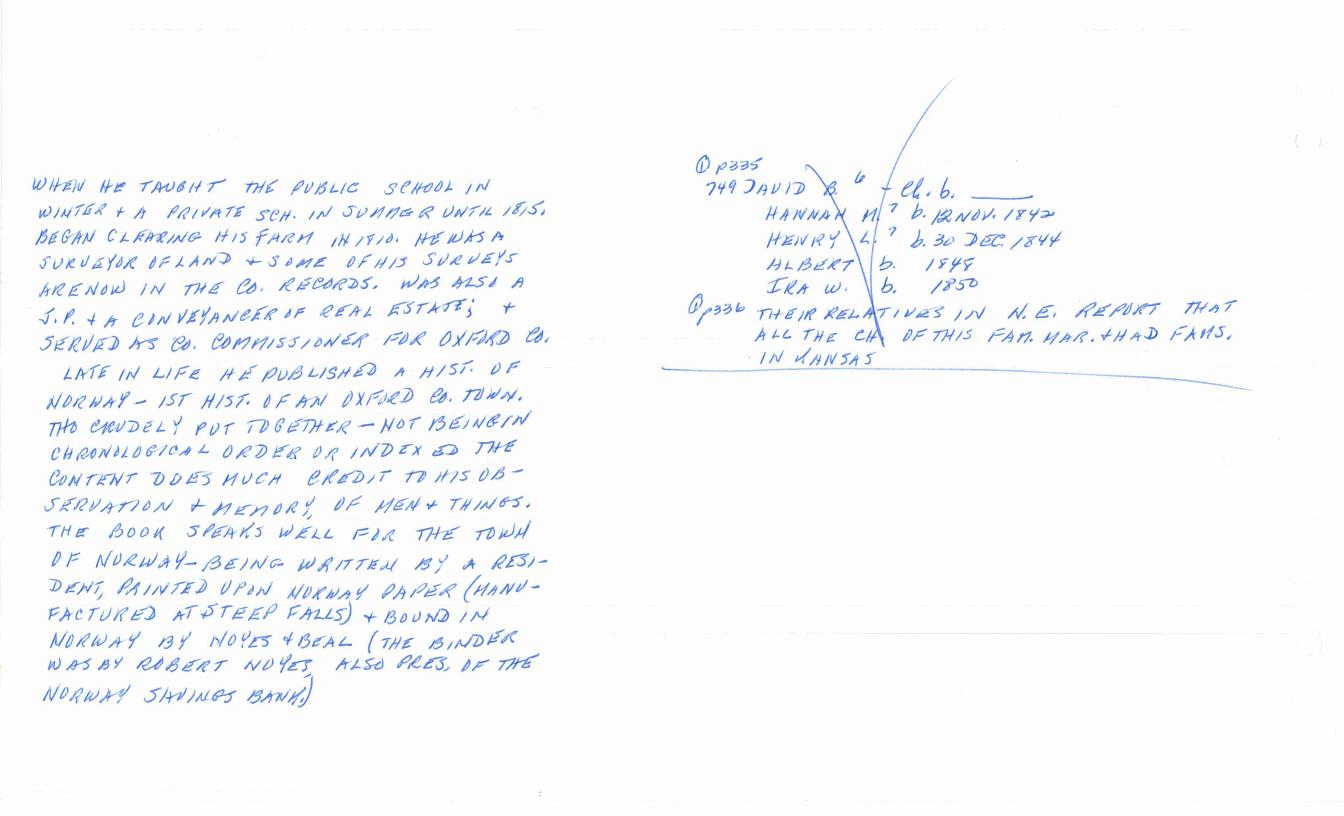 WHEN HE TAUGHT THE PUBLIC SCHOOL IN
WINTER + A PRIVATE SCH. IN SUMMER UNTIL 1815.
BEGAN CLEARING HIS FARM IN 1810. HE WAS A
SURVEYOR OF LAND + SOME OF HIS SURVEYS
ARE NOW IN THE CO. RECORDS. WAS ALSO A
J.P. + A CONVEYANCER OF REAL ESTATE; +
SERVED AS CO. COMMISSIONER FOR OXFORD CO.
LATE IN LIFE HE PUBLISHED A HIST. OF
NORWAY - 1ST HIST. OF AN OXFORD CO. TOWN.
THO CRUDELY PUT TOGETHER - NOT BEING IN
CHRONOLOGICAL ORDER OR INDEXED THE
CONTENT DOES MUCH CREDIT TO HIS OB-
SERVATION + MEMORY, OF MEN + THINGS.
THE BOOK SPEAKS WELL FOR THE TOWN
OF NORWAY - BEING WRITTEN BY A RESI-
DENT, PRINTED UPON NORWAY PAPER (MANU-
FACTURED AT STEEP FALLS) + BOUND IN
NORWAY BY NOYES + BEAL (THE BINDER
WAS BY ROBERT NOYES, ALSO PRES. OF THE
NORWAY SAVINGS BANK.)
① p335
749 DAVID B.⁶ - Ch. b. ______
HANNAH M.⁷ b. 12 NOV. 1842
HENRY L.⁷ b. 30 DEC. 1844
ALBERT b. 1848
IRA W. b. 1850
① p336 THEIR RELATIVES IN N.E. REPORT THAT
ALL THE CH. OF THIS FAM. MAR. + HAD FAMS.
IN KANSAS